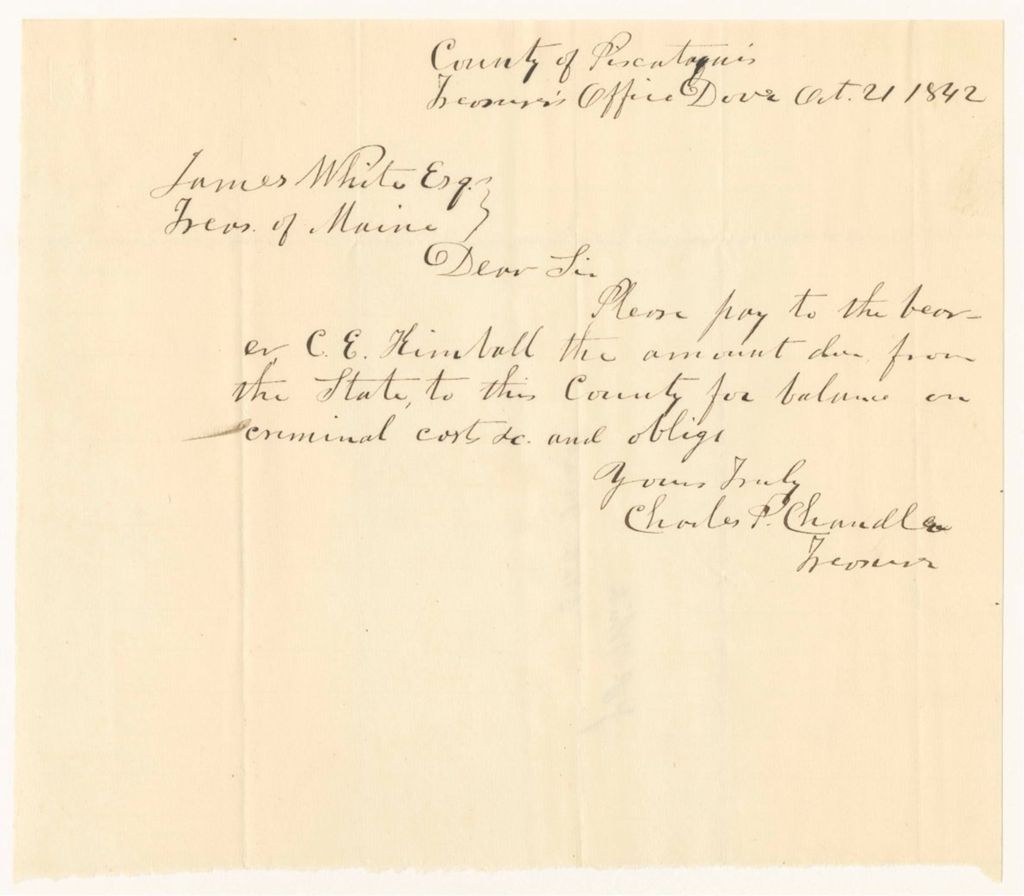 County of Piscataquis
Treasurer's Office Dover Oct. 21 1842
James White Esq.
Treas. of Maine
Dear Sir
Please pay to the bear-
er, C. E. Kimball the amount due from
the State, to this County for balance on
criminal costs &c. and oblige
Yours Truly
Charles P. Chandler
Treasurer